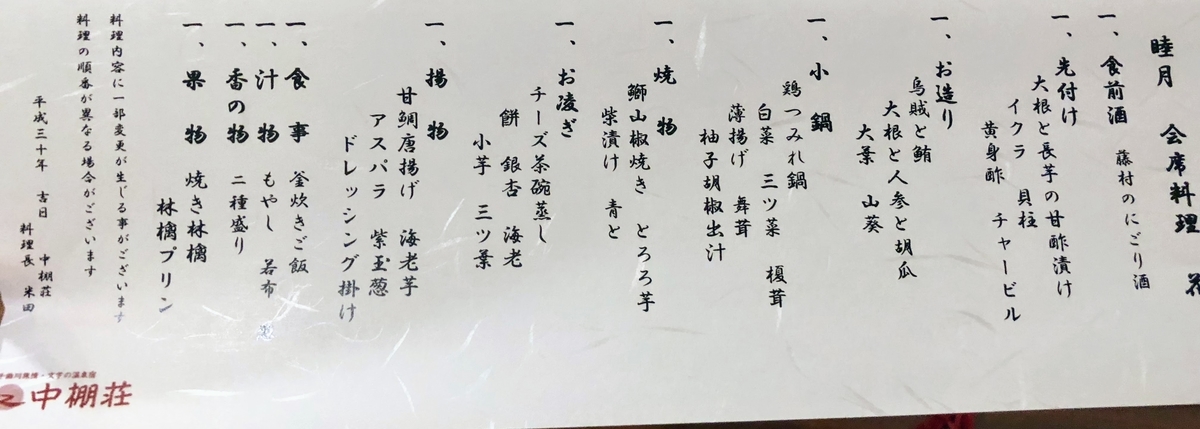 睦月 会席料理 花
一、食前酒 藤村のにごり酒
一、先付け
大根と長芋の甘酢漬け
イクラ 貝柱
黄身酢 チャービル
一、お造り
烏賊と鮪
大根と人参と胡瓜
大葉 山葵
一、小鍋
鶏つみれ鍋
白菜 三ツ葉 榎茸
薄揚げ 舞茸
柚子胡椒出汁
一、焼物
鰤山椒焼き とろろ芋
柴漬け 青と
一、お凌ぎ
チーズ茶碗蒸し
餅 銀杏 海老
小芋 三ツ葉
一、揚物
甘鯛唐揚げ 海老芋
アスパラ 紫玉葱
ドレッシング掛け
一、食事 釜炊きご飯
一、汁物 もやし 若布 葱
一、香の物 二種盛り
一、果物 焼き林檎
林檎プリン
料理内容に一部変更が生じる事がございます
料理の順番が異なる場合がございます
平成三十年 吉日 中棚荘
料理長 米田
千曲川旅情・文学の温泉宿
中棚荘